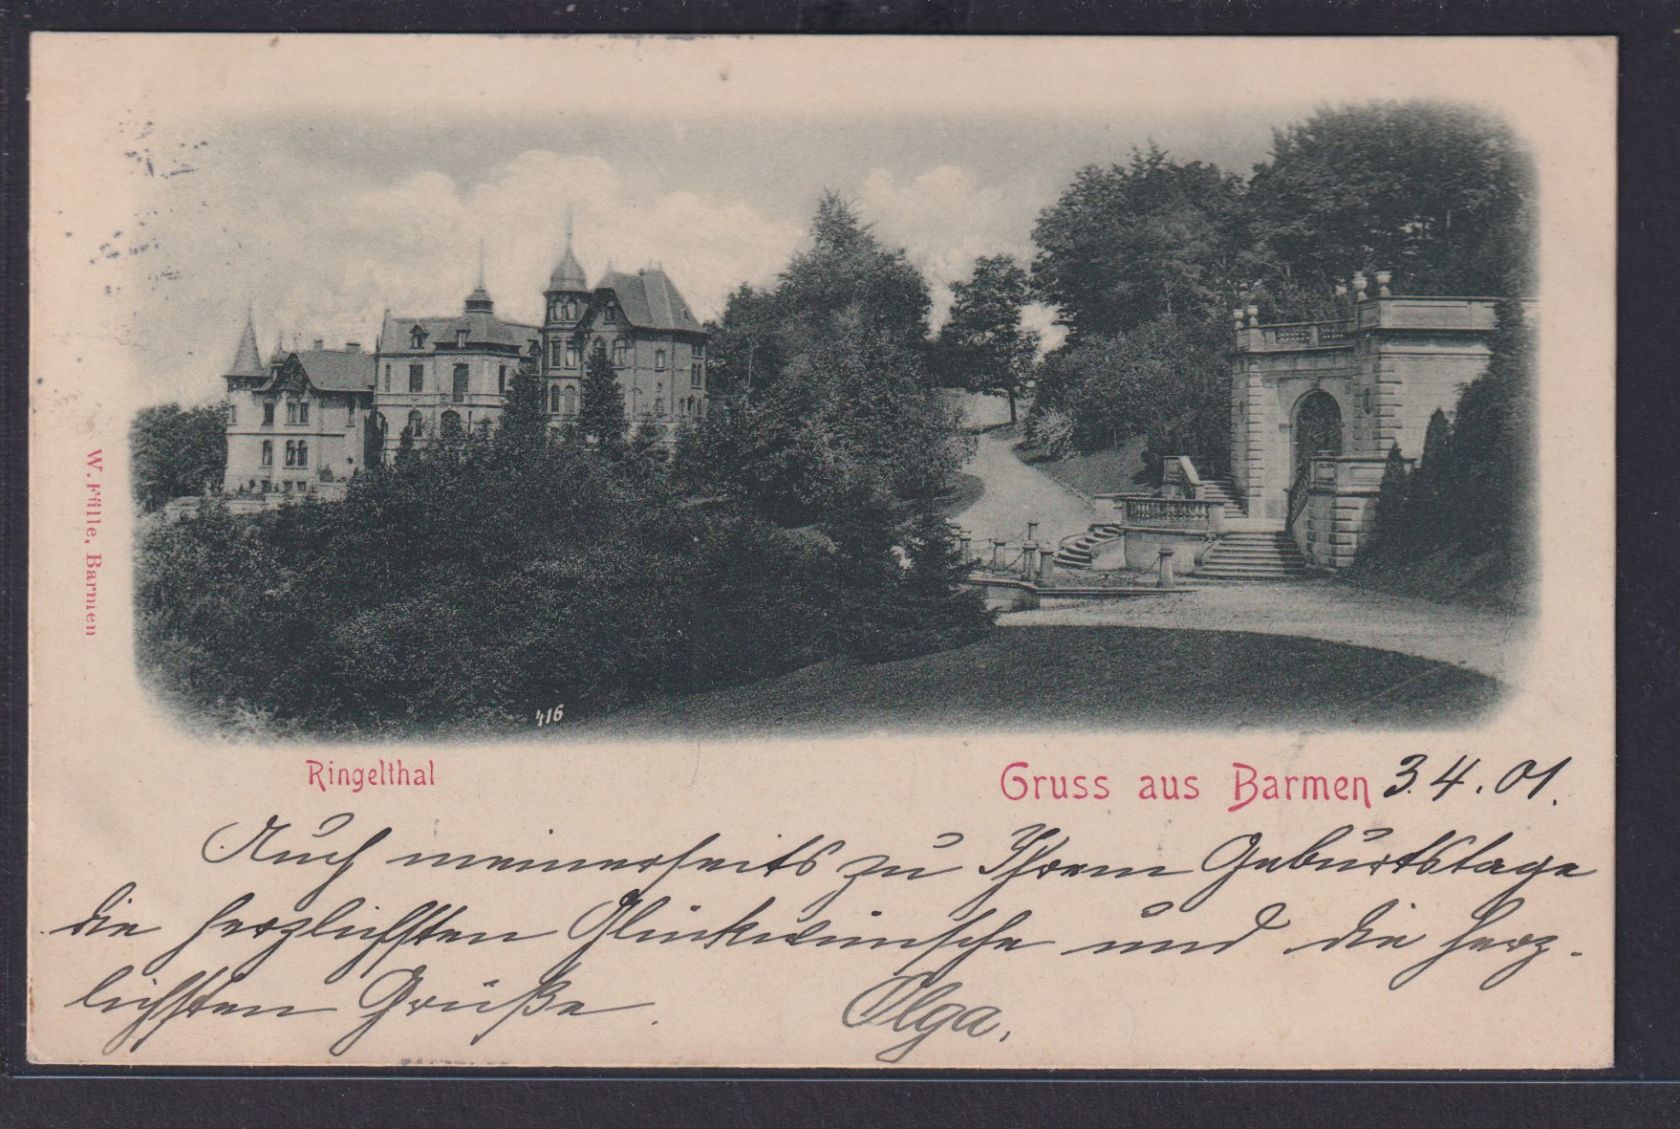 W. Fülle, Barmen
416
Ringelthal
Gruss aus Barmen 3.4.01.
Auch meinerseits zu Ihrem Geburtstage
die herzlichsten Glückwünsche und die herz-
lichsten Grüße. Olga.